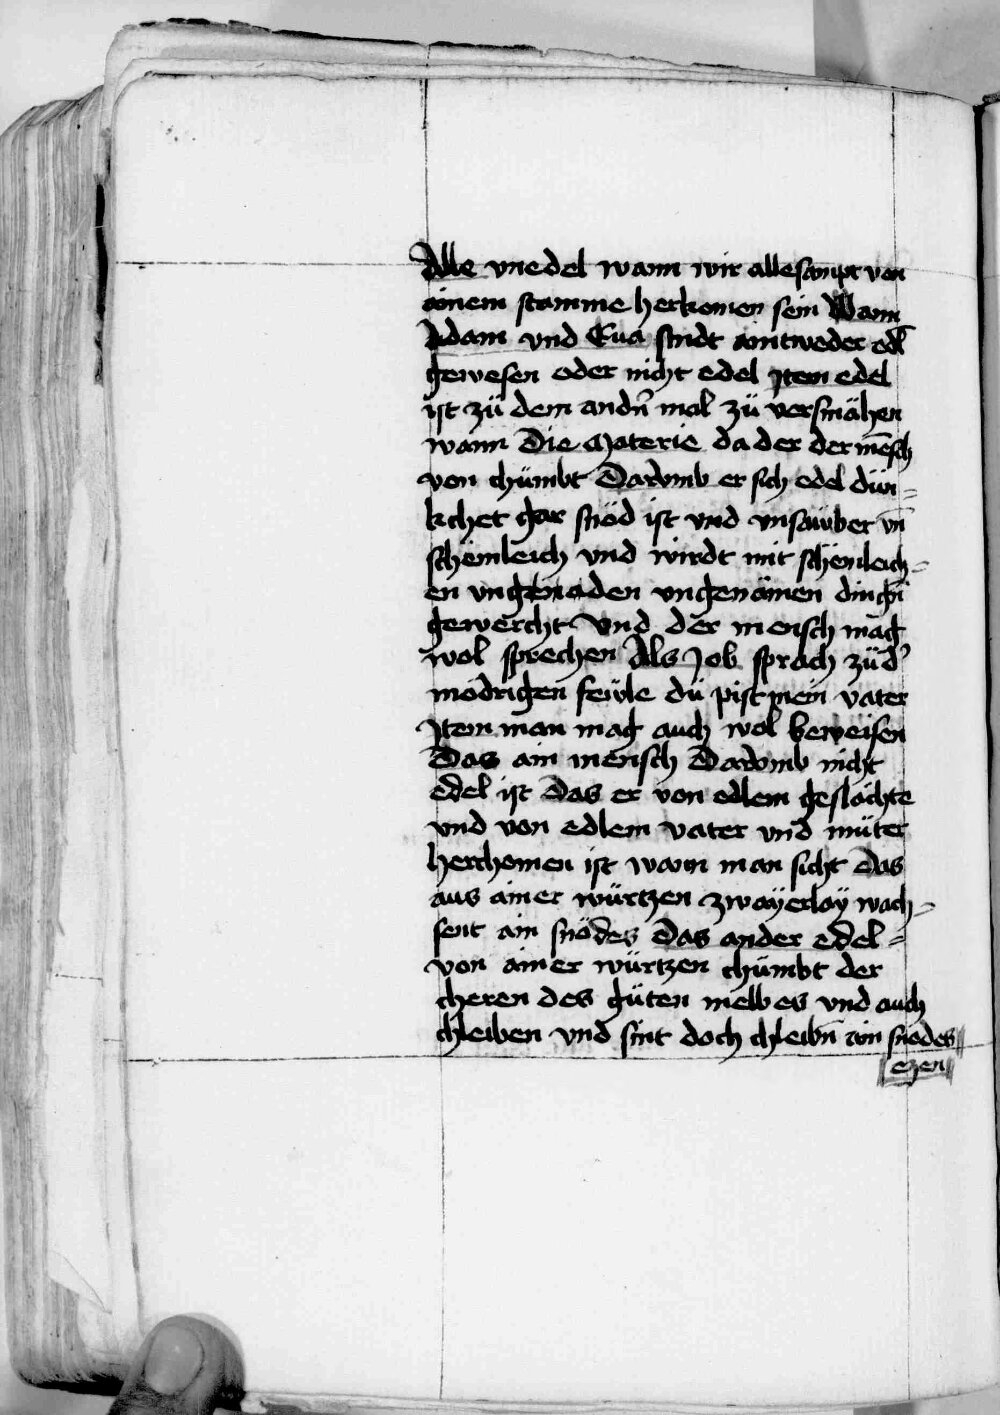 Alle vnedel wann wir allesampt von
ainem stamme herkomen sein Wann
Adam vnd Eua sindt aintweder edl
gewesen oder nicht edel Jtem edel
ist zü dem andn̄ mol zü versmähen
wann Die Materie da der der me̅sch
von chümbt Darvmb er sich edel dün=
kchet gar snöd ist vnd vnsauber vn̄
schemleich vnd wirdt mit schemleich=
en vngenaden vngenämen dingn̄
gewercht Vnd der mensch mag
wol sprechen Als Job sprach züd'
modrigen fewle dü pist mein vater
Jtem man mag auch wol beweisen
Das ain mensch Darvmb nicht
edel ist Das er von edlem geslächte
vnd von edlem vater vnd müter
herchomen ist wann man sicht Das
aus ainer würtzen zwayerlay wach=
sent ain snödes Das ander edel=
von ainer würtzen chümbt der
cheren des güten melbes vnd auch
chleiben vnd sint doch chleibn̄ ain snödes
ezen